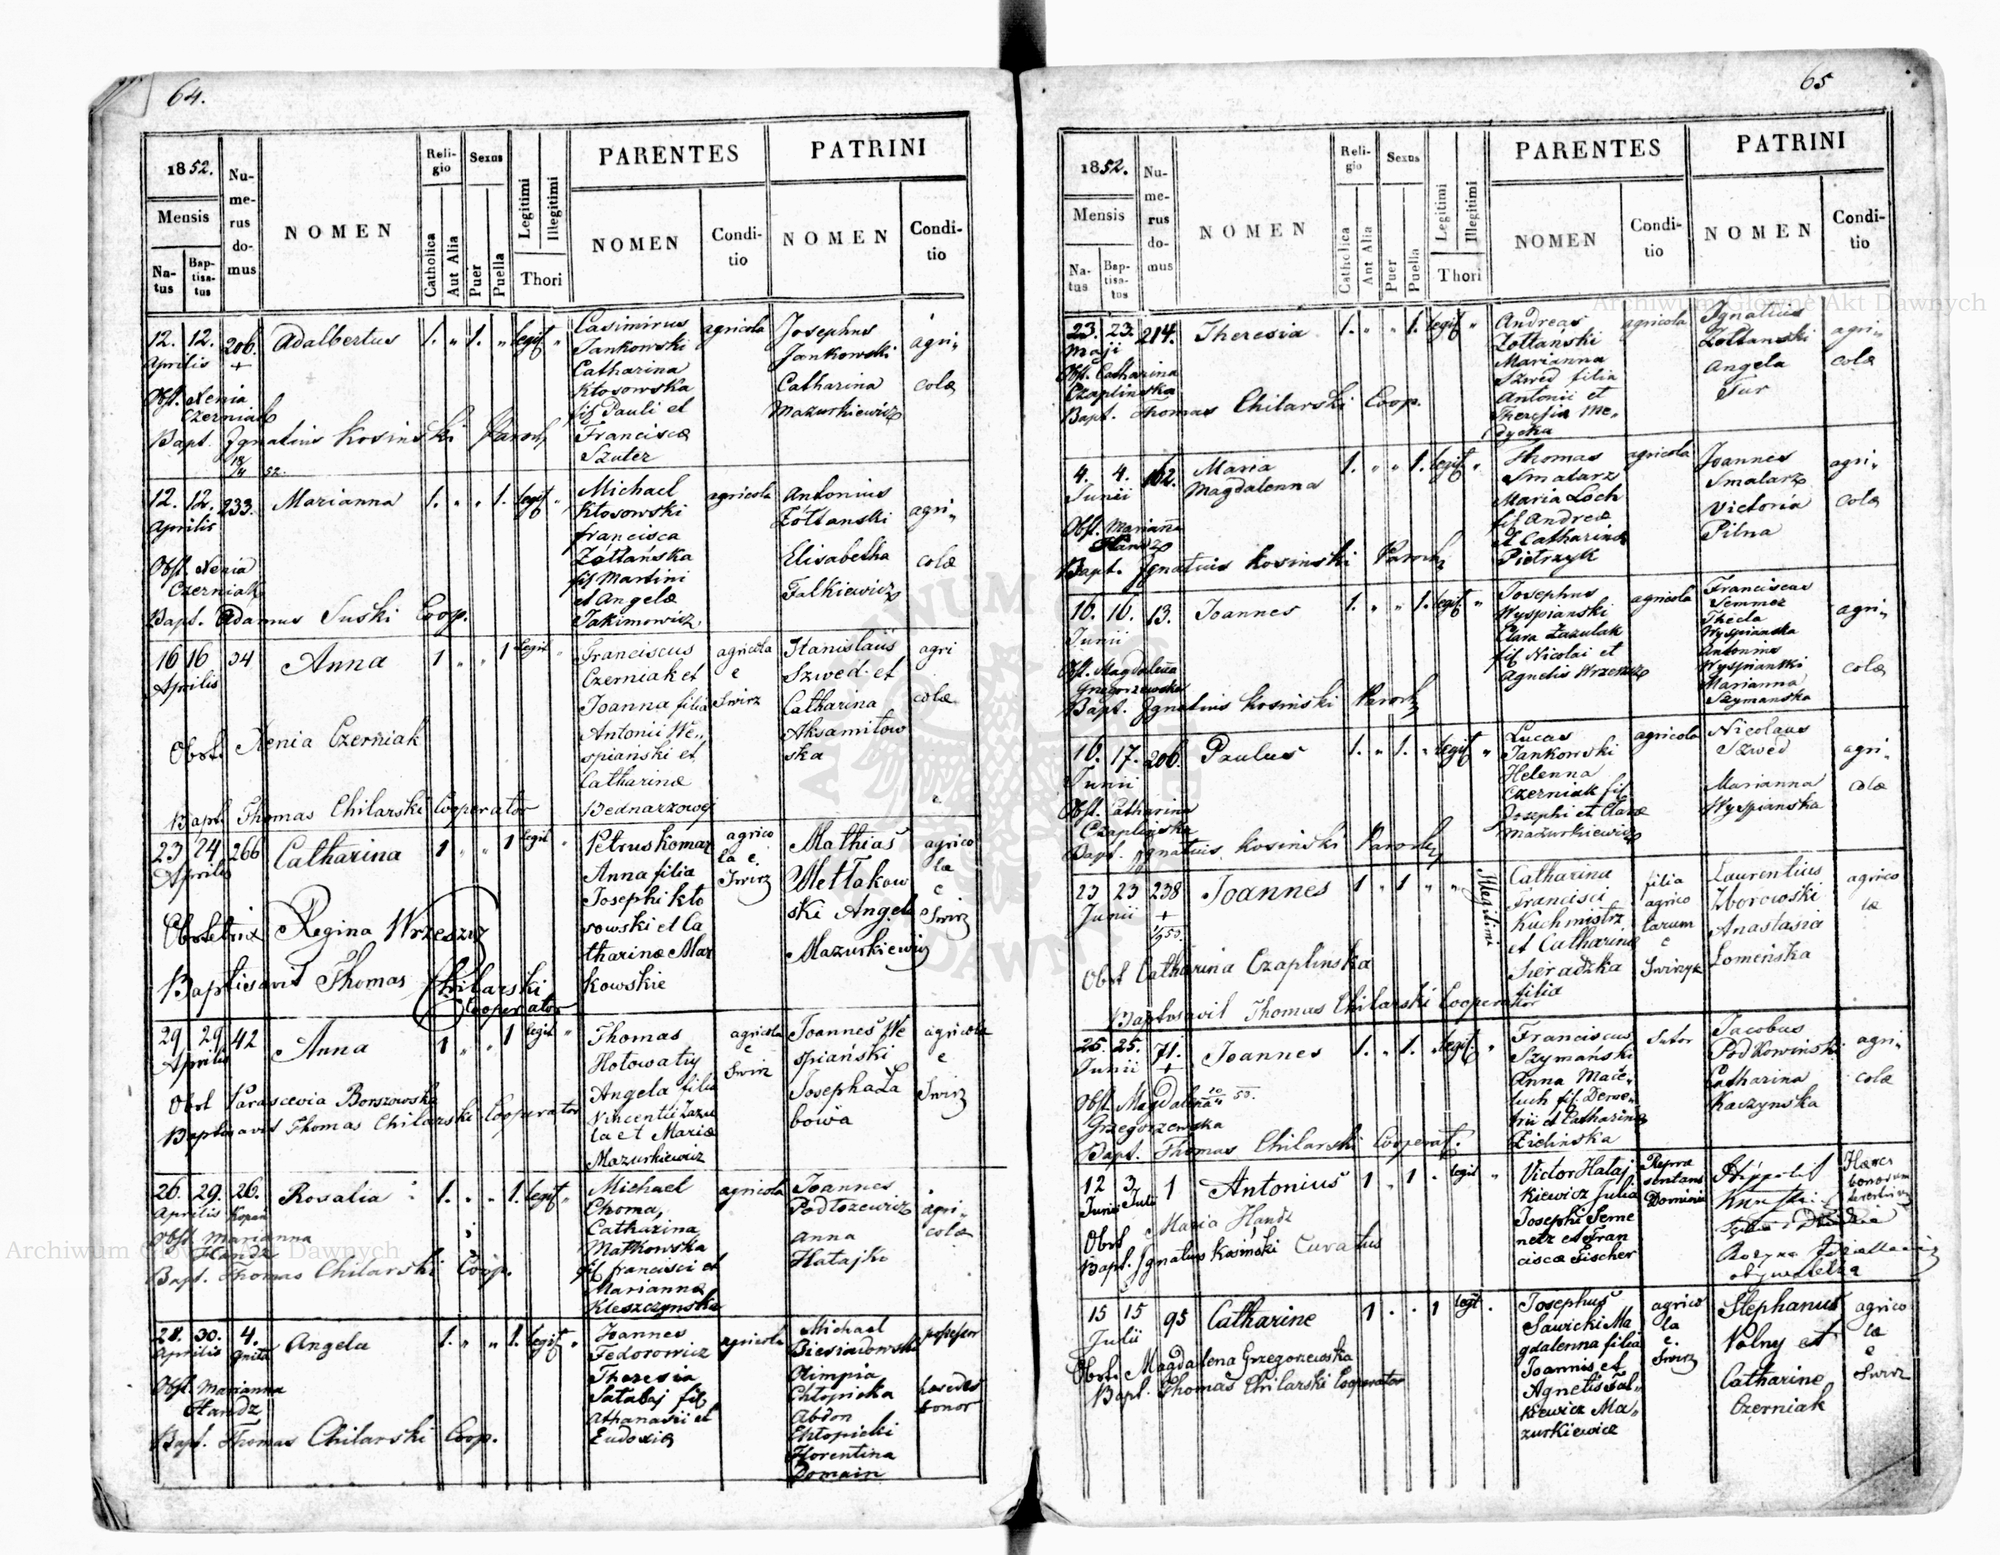 64.
1852.
Mensis
Natus
Baptisatus
Numerus domus
NOMEN
Religio
Catholica
Aut Alia
Sexus
Puer
Puella
Legitimi
Illegitimi
Thori
PARENTES
NOMEN
Conditio
PATRINI
NOMEN
Conditio
12. 12. 206. Adalbertus 1. " 1. " legit "
Aprilis
Casimirus
Jankowski
Catharina
Kłosowska
fil Pauli et
Franciscæ
Szuter
agricola
Josephus
Jankowski
Catharina
Mazurkiewicz
agri"
colæ
Obst. Xenia
Czerniak
Bapt. Ignatius Kosinski Paroch
12. 12. 233. Marianna 1. " " 1. legit "
Aprilis
Michael
Kłosowski
francisca
Żółtańska
fil Martini
et Angelæ
Jakimowicz
agricola
Antonius
Żółtanski
Elisabetha
Falkiewicz
agri"
colæ
Obst Xenia
Czerniak
Bapt. Adamus Suski Coop.
16 16 34 Anna 1 " " 1 legit "
Aprilis
Franciscus
Czerniak et
Joanna filia
Antonii We"
spiański et
Catharinæ
Bednarzowej
agricola
e
Swirz
Stanislaus
Szwed et
Catharina
Aksamitow
ska
agri
colæ
Obst. Xenia Czerniak
Bapt. Thomas Chilarski Cooperator
23 24 266 Catharina 1 " " 1 legit "
Aprilis
Petrus Komar
Anna filia
Josephi Kło
sowski et Ca
tharinæ Mar
kowskie
agrico
la e
Swirz
Mathias
Mettakow
ski Angel
Mazurkiewicz
agrico
læ
e
Swirz
Obstetrix Regina Wrzeszcz
Baptisavit Thomas Chilarski
Cooperator
29 29 42 Anna 1 " " 1 legit "
Aprilis
Thomas
Hotowaty
Angela filia
Vincentii Zazu
la et Mariæ
Mazurkiewicz
agricola
e
Swirz
Joannes We
spiański
Josepha Za
bowa
agricolæ
e
Swirz
Obst Parascevia Borszowska
Baptisavit Thomas Chilarski Cooperator
26. 29. 26. Rosalia 1. " " 1. legit "
Aprilis
Michael
Choma
Catharina
Matkowska
fil francisci et
Marianna
Kleszczynska
agricola
Joannes
Podłozewicz
Anna
Hatajko
agri"
colæ
Obst Marianna
Handz
Bapt. Thomas Chilarski Coop.
28. 30. 4. Angela 1. " " 1. legit "
Aprilis
Joannes
Fedorowicz
Theresia
Sałabaj fil
Athanasii et
Eudoxiæ
agricola
Michael
Biesiadowski
Olimpia
Chłopicka
Abdon
Chłopicki
Florentina
Domain
Obst. Marianna
Handz
Bapt. Thomas Chilarski Coop.
65
1852.
Mensis
Natus
Baptisatus
Numerus domus
NOMEN
Religio
Catholica
Aut Alia
Sexus
Puer
Puella
Legitimi
Illegitimi
Thori
PARENTES
NOMEN
Conditio
PATRINI
NOMEN
Conditio
23. 23. 214. Theresia 1. " " 1. legit "
Maji
Andreas
Zołtanski
Marianna
Szwed filia
Antonii et
Theresia Me"
dycka
agricola
Ignatius
Zołtanski
Angela
Tur
agri"
colæ
Obst. Catharina
Czaplinska
Bapt. Thomas Chilarski Coop.
4. 4. 162. Maria 1. " " 1. legit "
Junii Magdalenna
Thomas
Smalarz
Maria Loch
fil Andreæ
et Catharina
Pietrzyk
agricola
Joannes
Smalarz
Victoria
Pilna
agri"
colæ
Obst. Marianna
Handz
Bapt. Ignatius Kosinski Paroch
16. 16. 13. Joannes 1. " " 1. legit "
Junii
Josephus
Wyspianski
Clara Zazulak
fil Nicolai et
Agnetis Wrzeszcz
agricola
Franciscus
Semmer
Thecla
Wyspianska
Antonius
Wyspianski
Marianna
Szymanska
agri"
colæ
Obst. Magdalena
Gregorzewska
Bapt. Ignatius Kosiński Paroch
16. 17. 206. Paulus 1. " 1. " legit "
Junii
Lucas
Jankowski
Helenna
Czerniak fil
Josephi et Claræ
Mazurkiewicz
agricola
Nicolaus
Szwed
Marianna
Wyspianska
agri"
colæ
Obst. Catharina
Czaplinska
Bapt. Ignatius Kosinski Paroch
23 23 238 Joannes 1 " 1 " " Illegitimi
Junii
Catharina
Francisci
Kuchmistrz
et Catharinæ
Sieradzka
filia
filia
agrico
larum
e
Swirz
Laurentius
Zborowski
Anastasia
Lomeńska
agrico
læ
Obst Catharina Czaplinska
Baptisavit Thomas Chilarski Cooperator
25. 25. 71. Joannes 1. " 1. " legit. "
Junii
Franciscus
Szymański
Anna Mace"
luch fil. Deme"
trii et Catharinæ
Zielińska
Sutor
Jacobus
Podkowinski
Catharina
Kaczynska
agri"
colæ
Obst. Magdalena
Grzegorzewska
Bapt. Thomas Chilarski Cooperat.
12 3 1 Antonius 1 " 1 " legit "
Junii Julii
Victor Hataj
kiewicz Julia
Josephi Seme
netz et Fran
ciscæ Fischer
Repræ
sentans
Dominii
Hippolit
Hæres
bonorum
Obst Maria Handz
Bapt. Ignatius Kosiński Curatus
15 15 95 Catharine 1 " " 1 legit "
Julii
Josephus
Sawicki Ma
gdalena filia
Joannis et
Agnetis Fal"
kiewicz Ma"
zurkiewicz
agrico
la
e
Swirz
Stephanus
Volny et
Catharine
Czerniak
agrico
læ
e
Swirz
Obst. Magdalena Grzegorzewska
Bapt. Thomas Chilarski Cooperator
Archiwum Główne Akt Dawnych
Archiwum Główne Akt Dawnych